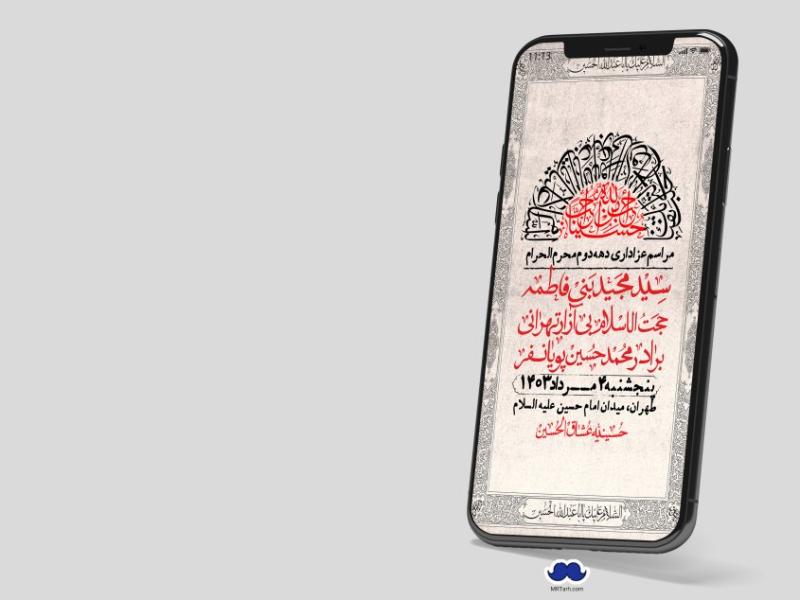 11:13
السلام علیک یا اباعبدالله الحسین
احب الله من احب حسینا
مراسم عزاداری دهه دوم محرم الحرام
سید مجید بنی فاطمه
حجت الاسلام بی آزار تهرانی
برادر محمد حسین پویانفر
پنجشنبه ۴ مرداد ۱۴۰۳
طهران، میدان امام حسین علیه السلام
حسینیه عشاق الحسین
السلام علیک یا اباعبدالله الحسین
MRTarh.com